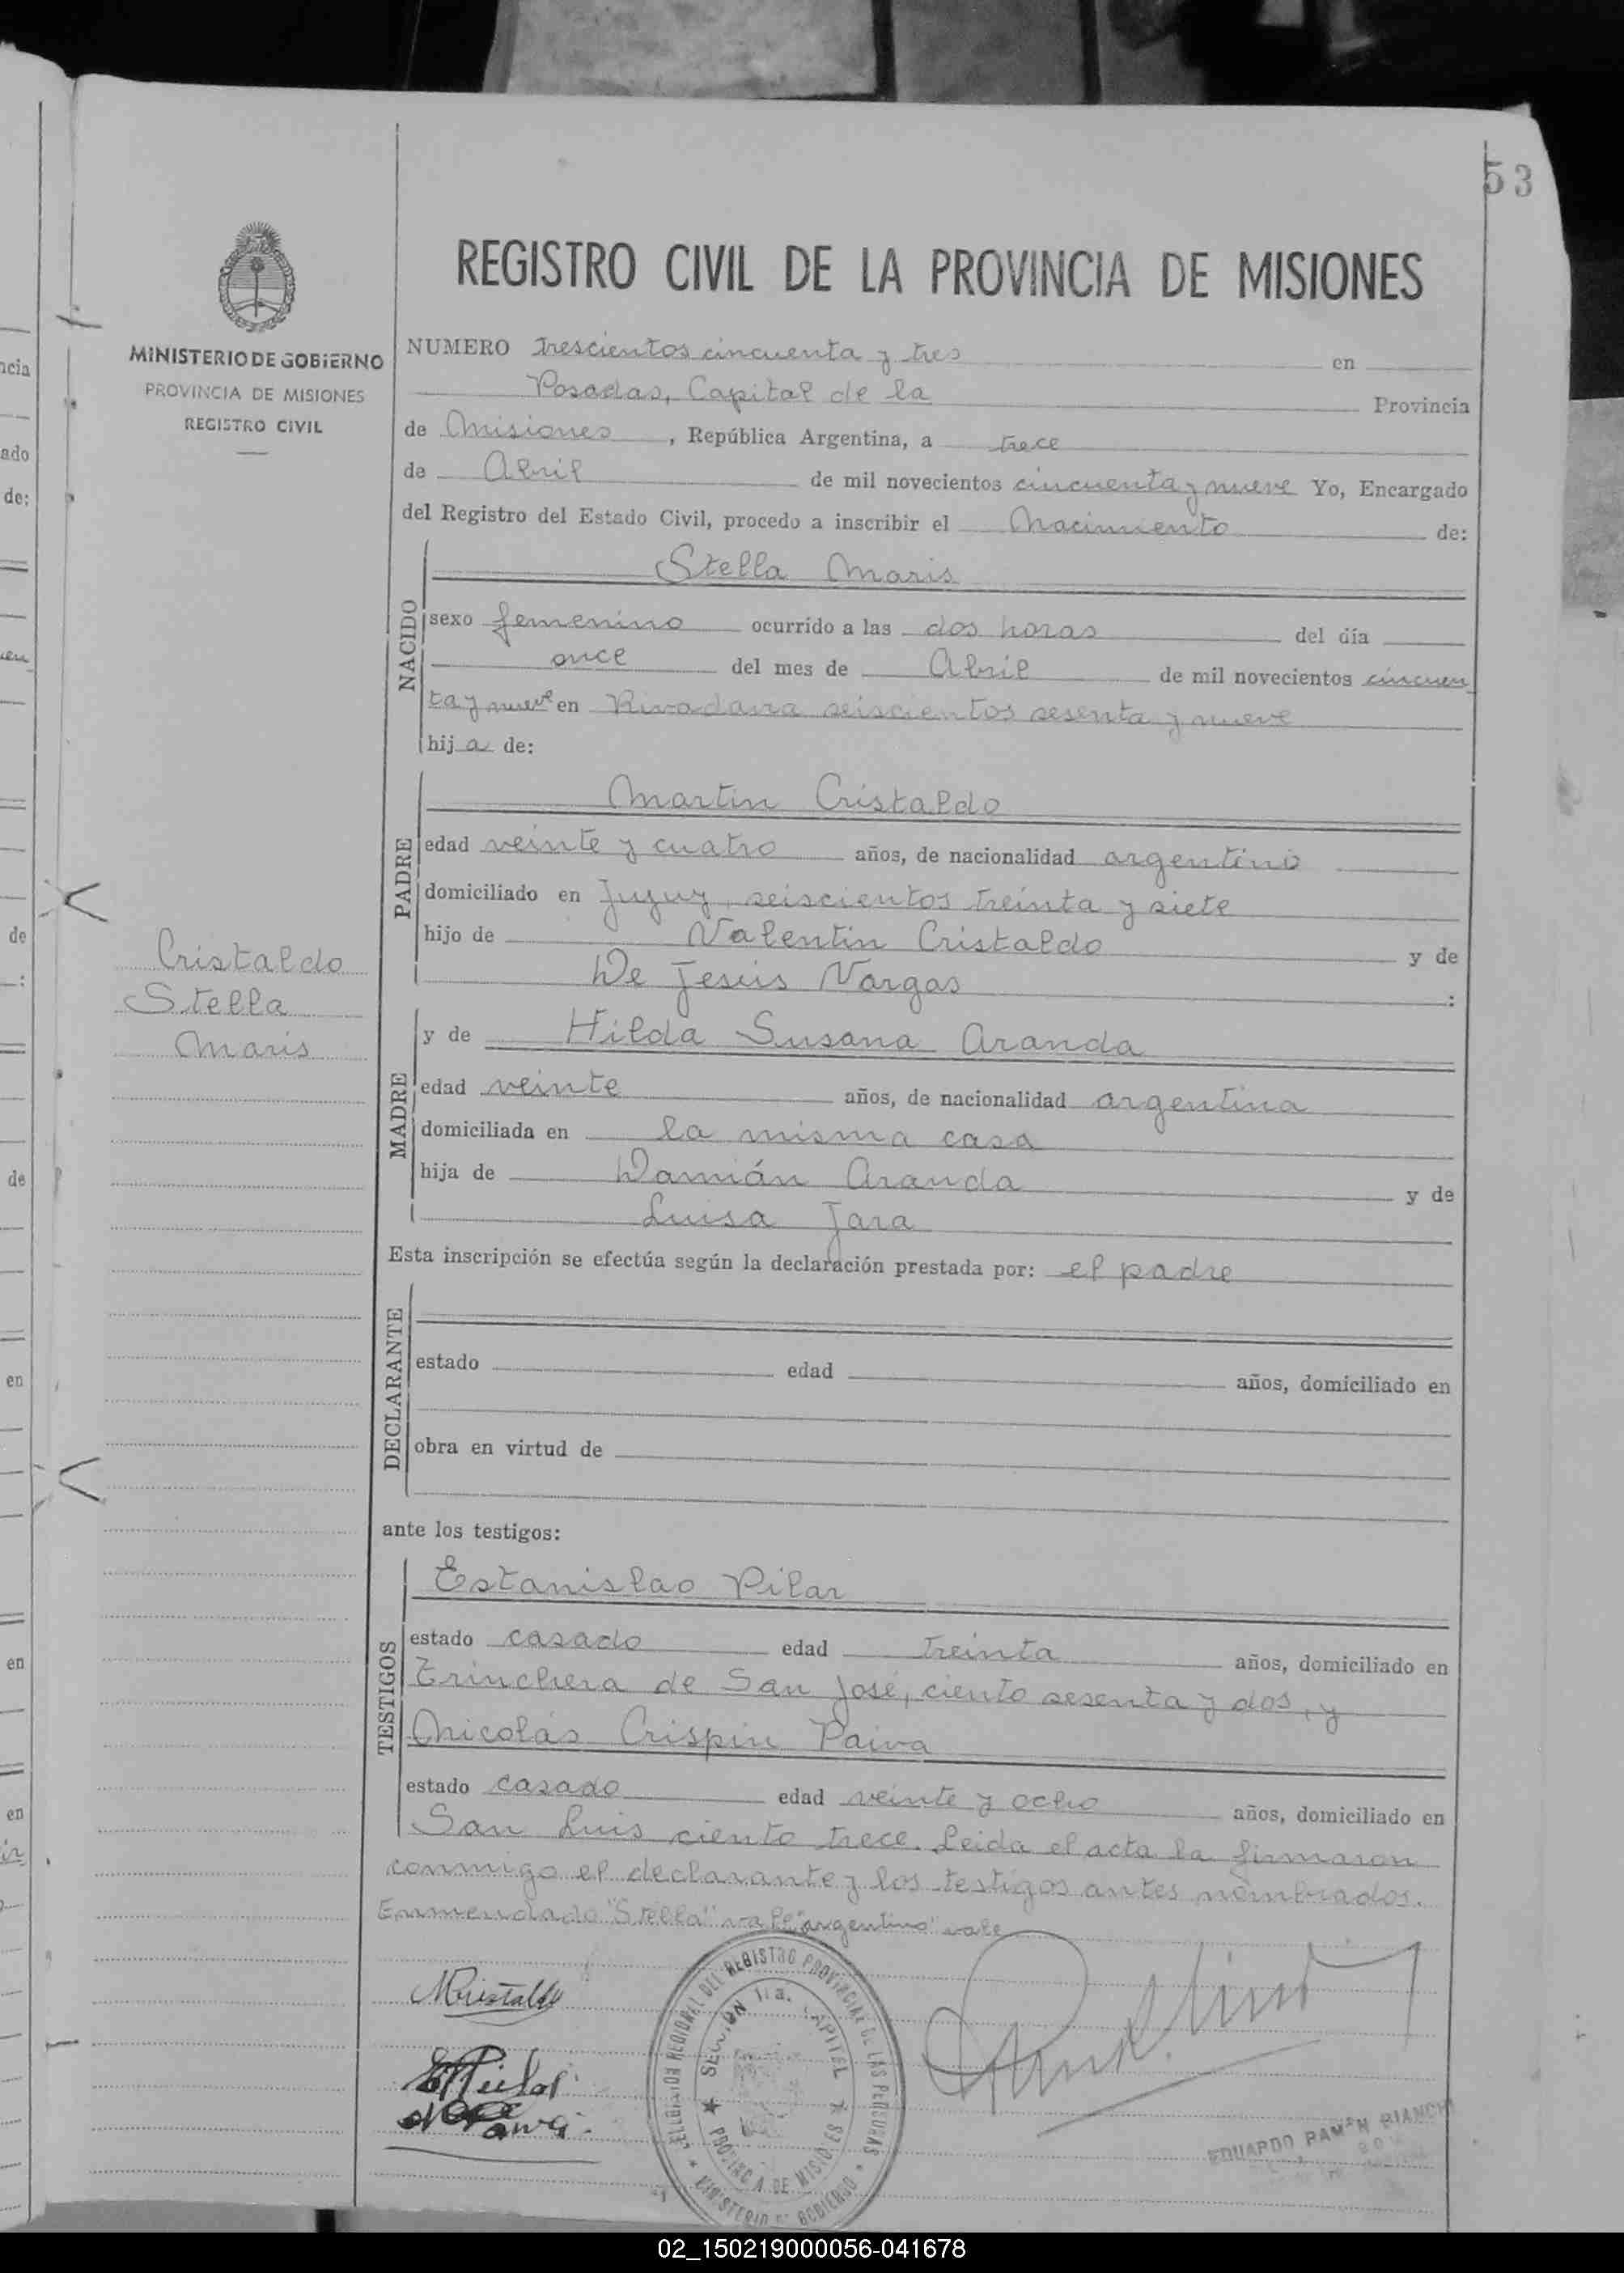 53
REGISTRO CIVIL DE LA PROVINCIA DE MISIONES
MINISTERIO DE GOBIERNO
PROVINCIA DE MISIONES
REGISTRO CIVIL
NUMERO Trescientos cincuenta y tres en
Posadas, Capital de la Provincia
de Misiones, República Argentina, a trece
de Abril de mil novecientos cincuenta y nueve Yo, Encargado
del Registro del Estado Civil, procedo a inscribir el Nacimiento de:
NACIDO
Stella Maris
sexo femenino ocurrido a las dos horas del día
once del mes de Abril de mil novecientos cincuen
ta y nueve en Rivadavia seiscientos sesenta y nueve
hija de:
PADRE
Martin Cristaldo
edad veinte y cuatro años, de nacionalidad argentino
domiciliado en Jujuy, seiscientos treinta y siete
hijo de Valentin Cristaldo y de
De Jesús Vargas :
Cristaldo
Stella
Maris
MADRE
y de Hilda Susana Aranda
edad veinte años, de nacionalidad argentina
domiciliada en la misma casa
hija de Damián Aranda y de
Luisa Jara
Esta inscripción se efectúa según la declaración prestada por: el padre
DECLARANTE
estado edad años, domiciliado en
obra en virtud de
ante los testigos:
TESTIGOS
Estanislao Pilar
estado casado edad treinta años, domiciliado en
Trinchera de San José, ciento sesenta y dos, y
Nicolás Crispin Paiva
estado casado edad veinte y ocho años, domiciliado en
San Luis ciento trece. Leida el acta la firmaron
conmigo el declarante y los testigos antes nombrados.
Enmendado "Stella" vale "argentino" vale
MCristaldo
EPilar
Paiva
REGIONAL DEL REGISTRO PROVINCIAL DE LAS PERSONAS
MINISTERIO DE GOBIERNO
SECCION 1ra. CAPITAL
PROVINCIA DE MISIONES
EDUARDO RAMON BIANCHI
02_150219000056-041678